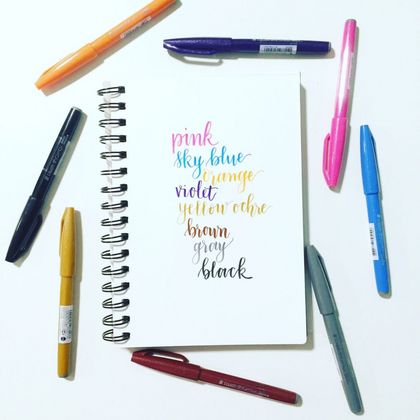 pink
sky blue
orange
violet
yellow ochre
brown
gray
black